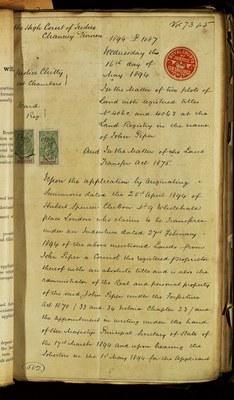 the High Court of Justice
Chancery Division
1894 P 1087
Justice Chitty
at Chambers
Wednesday the
16th day of
May 1894
In the Matter of two plots of
Land with registered titles
No 4062 and 4063 at the
Land Registry in the name
of John Piper
And In the Matter of the Land
Transfer Act 1875
Upon the application by Originating
Summons dated the 25th April 1894 of
Herbert Spencer Clutton of 9 Whitehall
place London who claims to be Transferee
under an Indenture dated 27th February
1894 of the above mentioned Lands from
John Piper a Convict the registered proprietor
thereof with an absolute title and is also the
administrator of the Real and personal property
of the said John Piper under the Forfeiture
Act 1870 (33 and 34 Victoria Chapter 23) and
the appointment in writing under the hand
of Her Majestys Principal Secretary of State of
the 17th March 1894 and upon hearing the
Solicitor on the 1st May 1894 for the Applicant